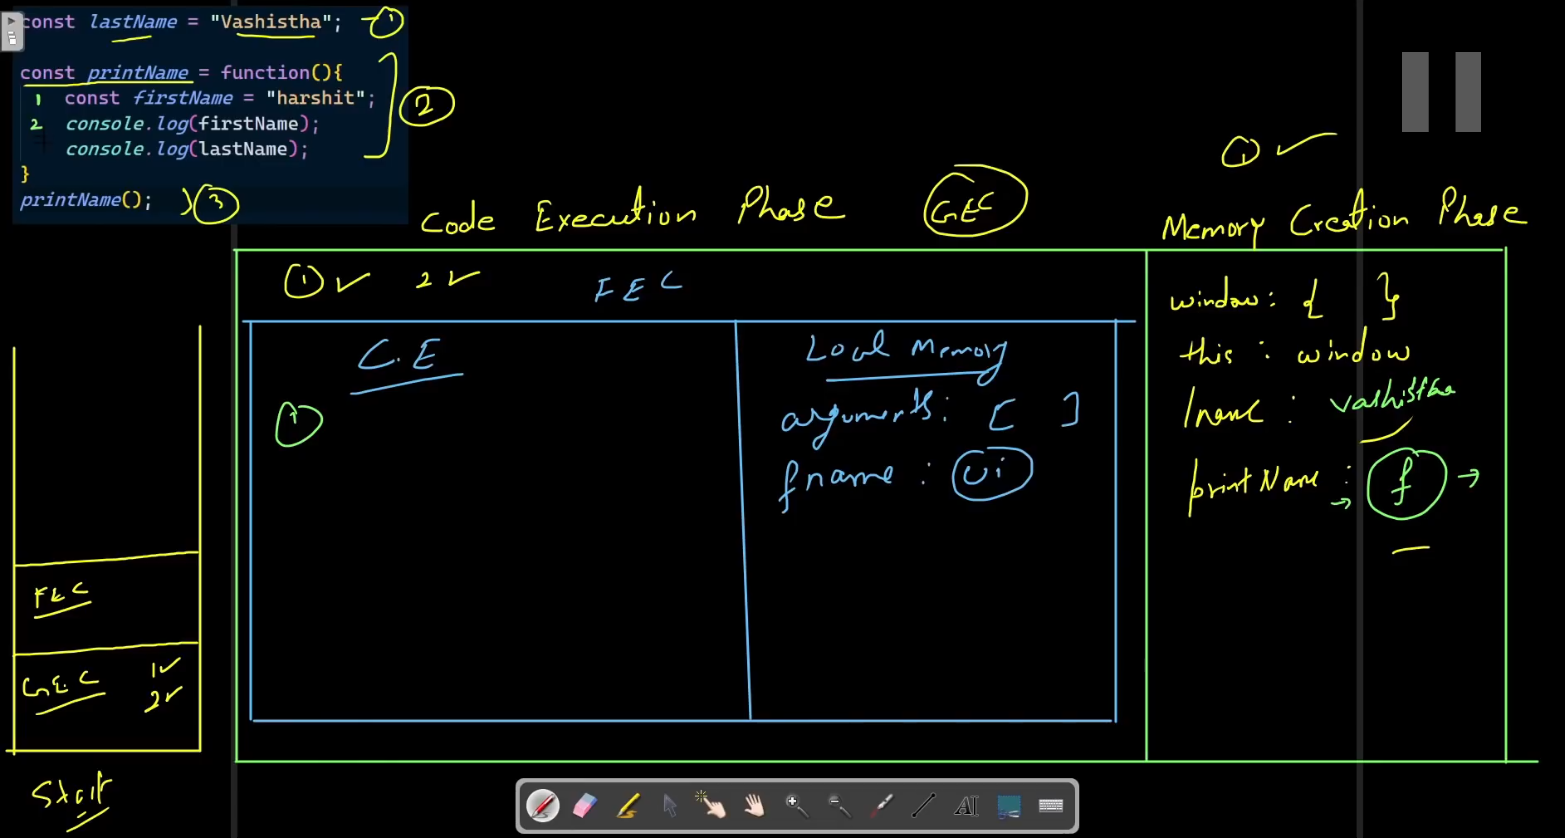 const lastName = "Vashistha"; 1
const printName = function(){
1 const firstName = "harshit";
2 console.log(firstName);
console.log(lastName);
}
2
printName(); 3
1
Code Execution Phase GEC
Memory Creation Phase
1 2
FEC
C.E
1
Local Memory
arguments: [ ]
fname : ui
window: { }
this : window
lname : vashistha
printName : f
FEC
GEC 1
2
Start
AI